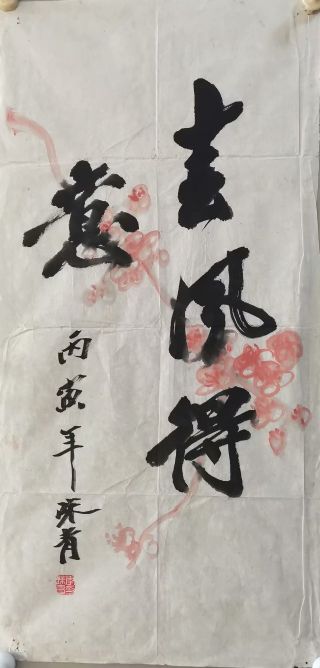 春風得
意
丙寅年